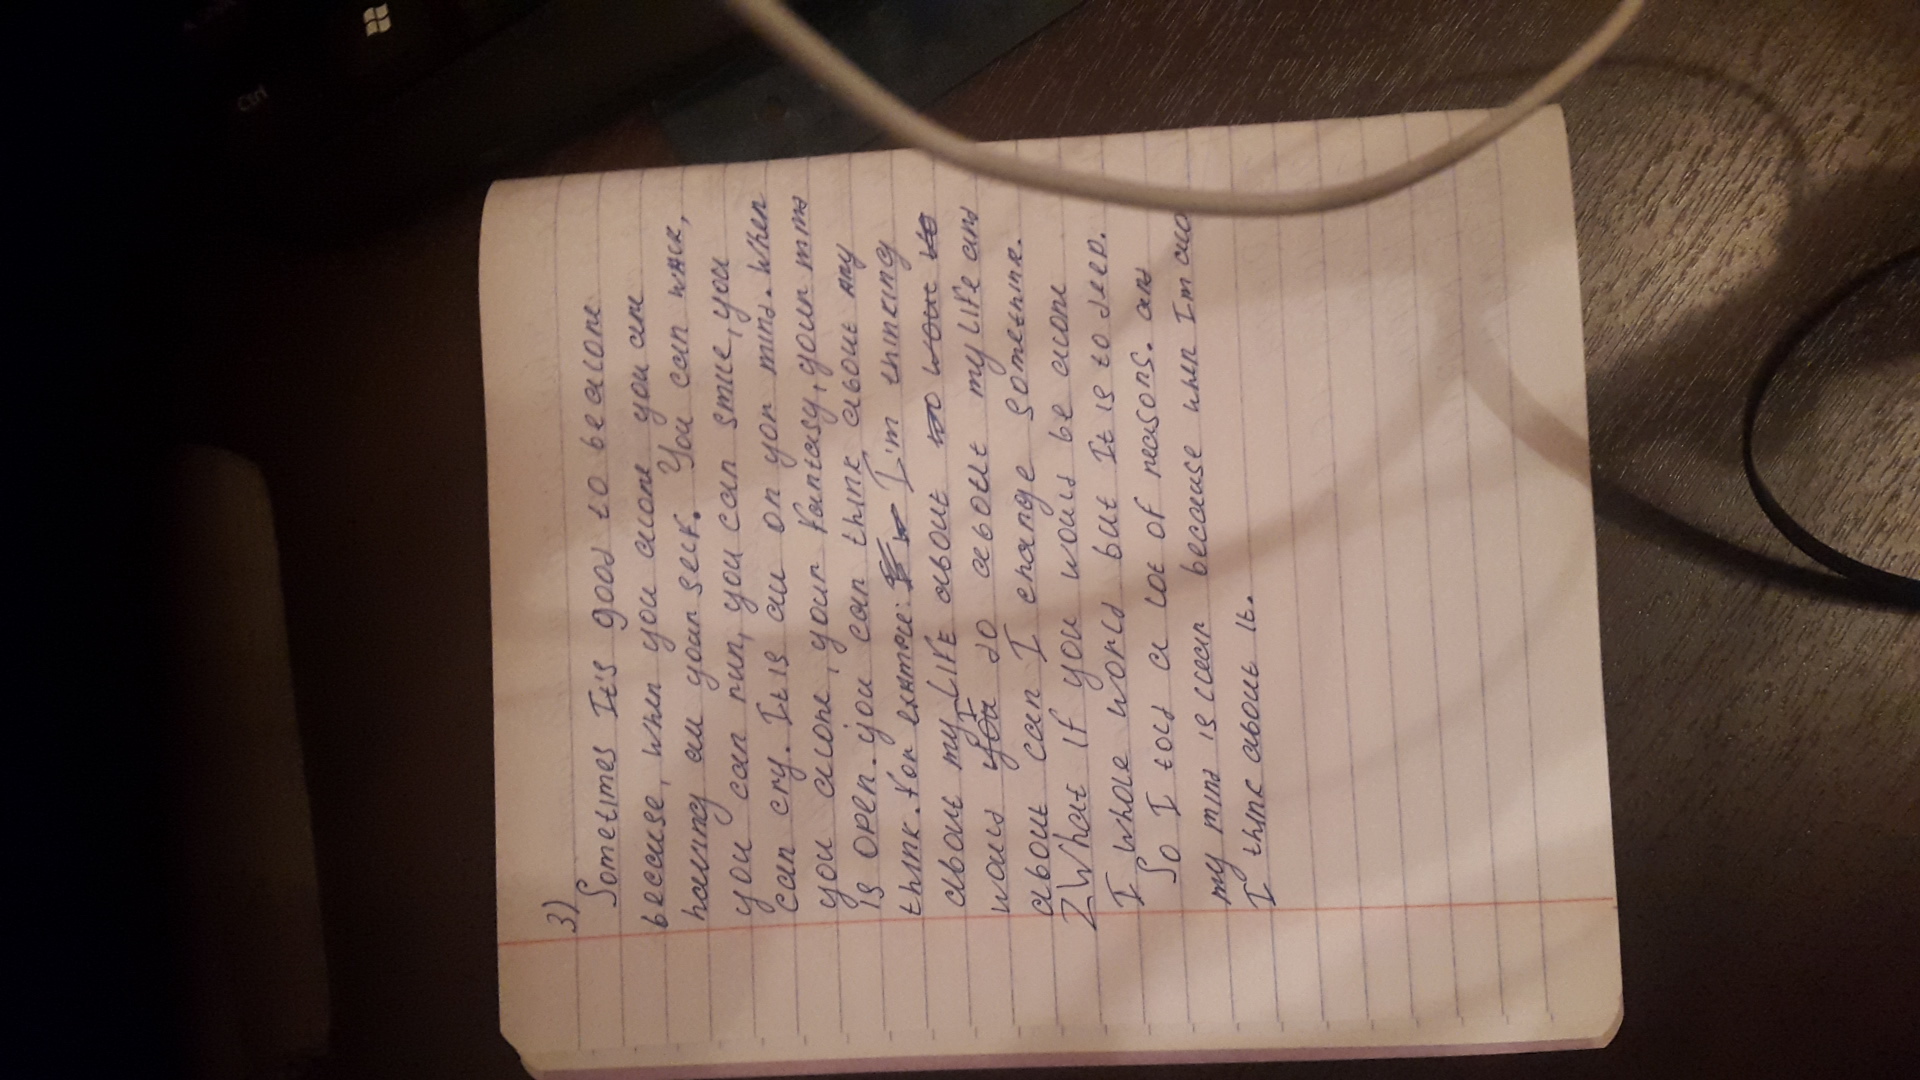 Ctrl
3)
Sometimes It's good to be alone
because, when you alone you are
having all your self. You can walk,
you can run, you can smile, you
can cry. It is all on yor mind. When
you alone, your fantasy, your mind
is open. you can think about any
think. for example: I'm thinking
about my life about
would I do about my life and
about can I change somethink.
2 What if you would be alone
I whole world but It is to deep.
So I told a lot of reasons. and
my mind is clear because when Im alo
I think about it.